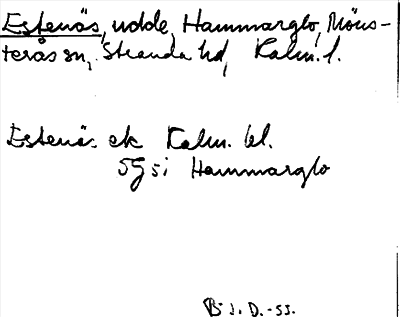 Estenäs, udde, Hammarglo, Möns-
terås sn, Stranda hd, Kalm. l.
Estenäs ek Kalm. bl.
5G si Hammarglo
B. J. D. -53.